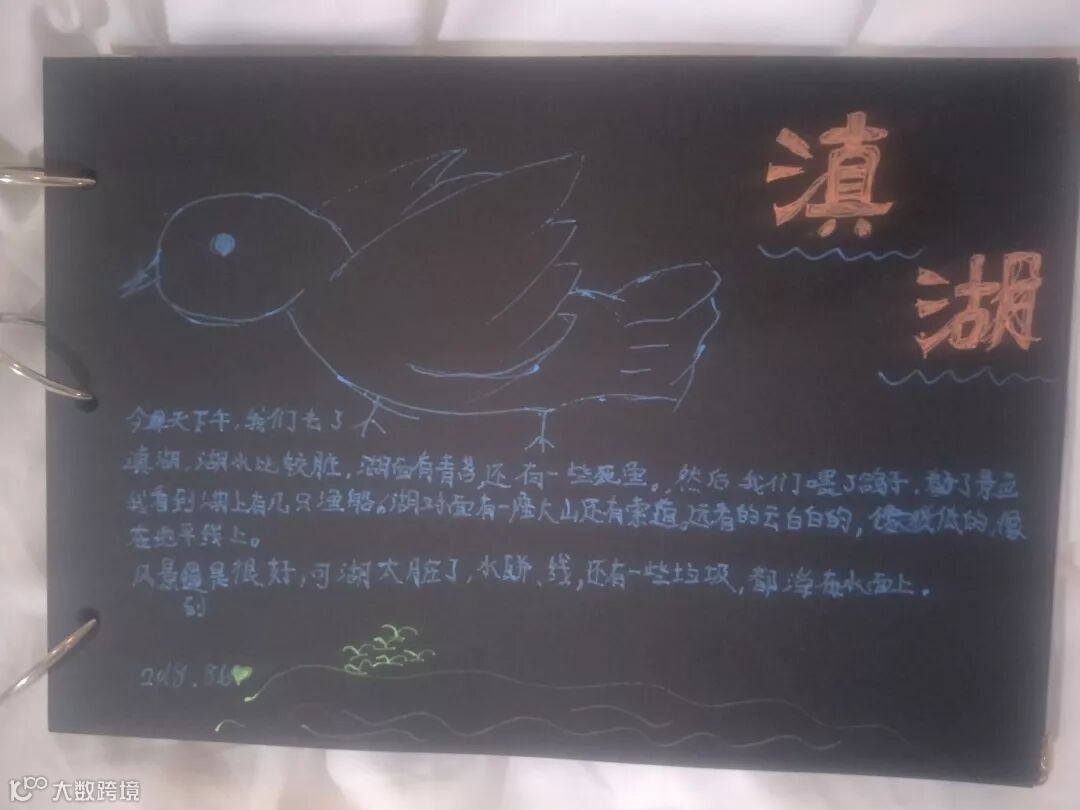 滇
湖
今天下午,我们去了
滇湖,湖水比较脏,湖面有青 还有一些死鱼。然后我们喂了鸽子,
我看到湖上有几只渔船。湖对面有一座大山还有索道。远看的云白白的, 低的,像
在地平线上。
风景 是很好,可湖太脏了,水 、线,还有一些垃圾,都浮在水面上。
到
2018.8.6
大数跨境